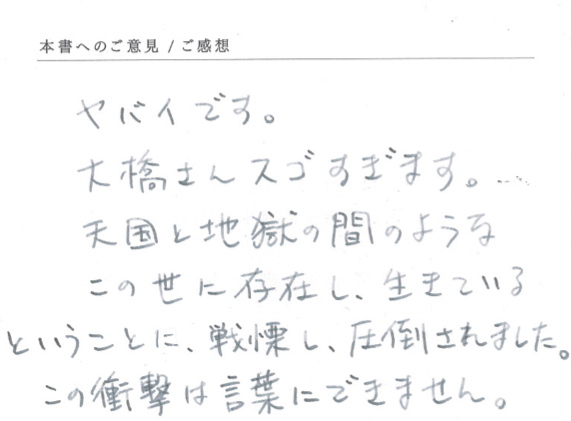 本書へのご意見 / ご感想
ヤバイです。
大橋さんスゴすぎます。....
天国と地獄の間のような
この世に存在し、生きている
ということに、戦慄し、圧倒されました。
この衝撃は言葉にできません。